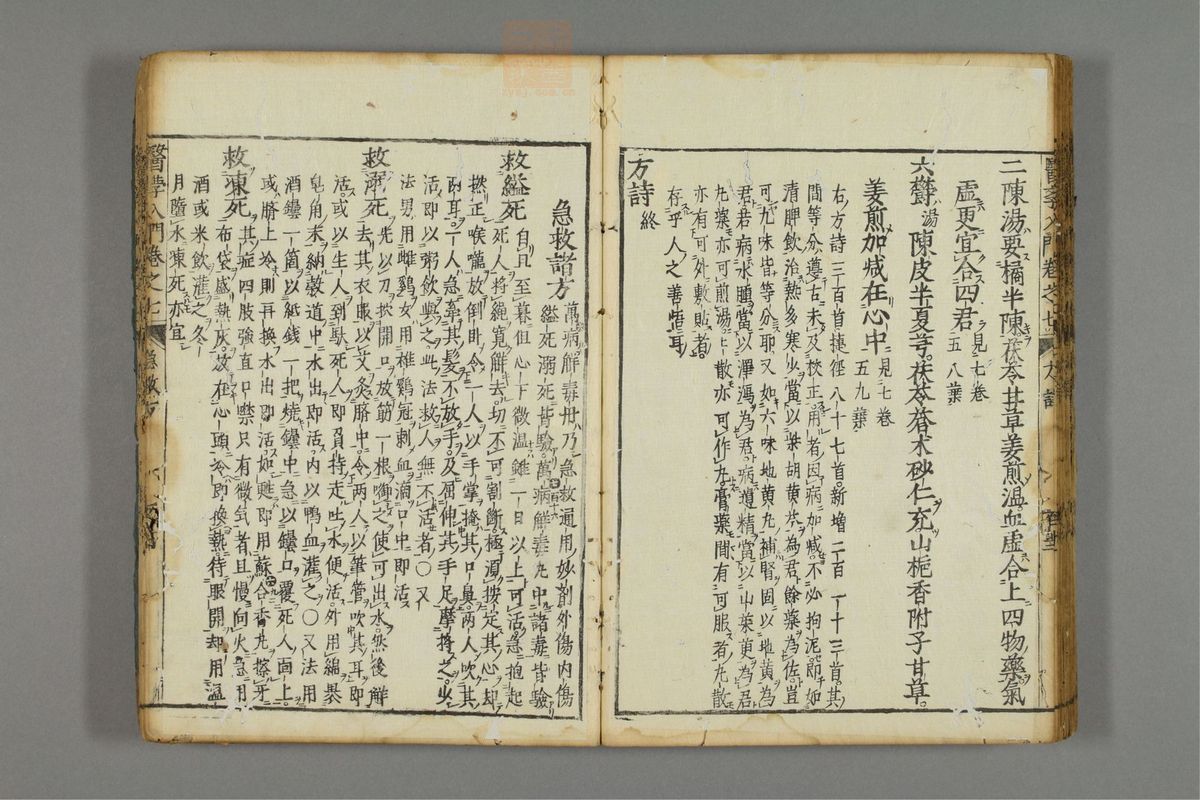 二陳湯要橘半陳茯苓甘草姜煎温血虚合上四物藥氣
虚更宜合四君見七卷五八葉
六鬱湯陳皮半夏芎茯苓蒼朮砂仁充山梔香附子甘草
姜煎加减在心中見七卷五九葉
右方詩三百首捷徑八十七首新增二百一十三首其
間等分遵古未及校正用者因病加减不必拘泥即如
清脾飲治熱多寒少當以柴胡黄芩為君餘藥為佐豈
可九味皆等分耶又如六味地黄丸補腎固以地黄為
君君病水腫當以澤瀉為君病遺精當以山藥萸為君
丸藥亦可煎湯上散亦可作丸膏藥間有可服者丸散
亦有可外敷貼者
存乎人之善悟耳
方詩終
急救諸方萬病解毒丹乃急救通用妙劑外傷内傷
縊死溺死皆驗萬病解毒丸中諸毒皆驗
救縊死自旦至暮但心下微温雖一日以上可活急抱起
死人將繩寛解去切不可割斷極濁按定其心却
撚正喉嚨放倒臥令一人以手掌掩其口鼻兩人吹其
兩耳一人急牽其髮不放手及屈伸其手足摩將之少
活即以粥飲與之此法救人無不活者○又
法男用雌鷄女用雄鷄冠刺血滴口中即活
救溺死先以刀挍開口放筯一根啣之使可出水然後觧
去其衣服以艾灸臍中令兩人以筆管吹其耳即
活或以生人到駄死人即負持走吐水便活外用綿裹
皂角末納穀道中水出即活内以鴨血灌之○又法用
酒罎一箇以紙錢一把燒罎中急以罎口覆死人面上
或臍上冷則再換水出即活如甦即用蘇合香丸擦牙
救凍死其症四肢強直口噤只有微気者且慢向火急用
布袋盛熱灰放在心頭冷即換熱待眼開却用温
酒或米飲灌之冬
月墮水凍死亦宜
醫學入門卷之七
急救方
醫学入門卷之七
方詩